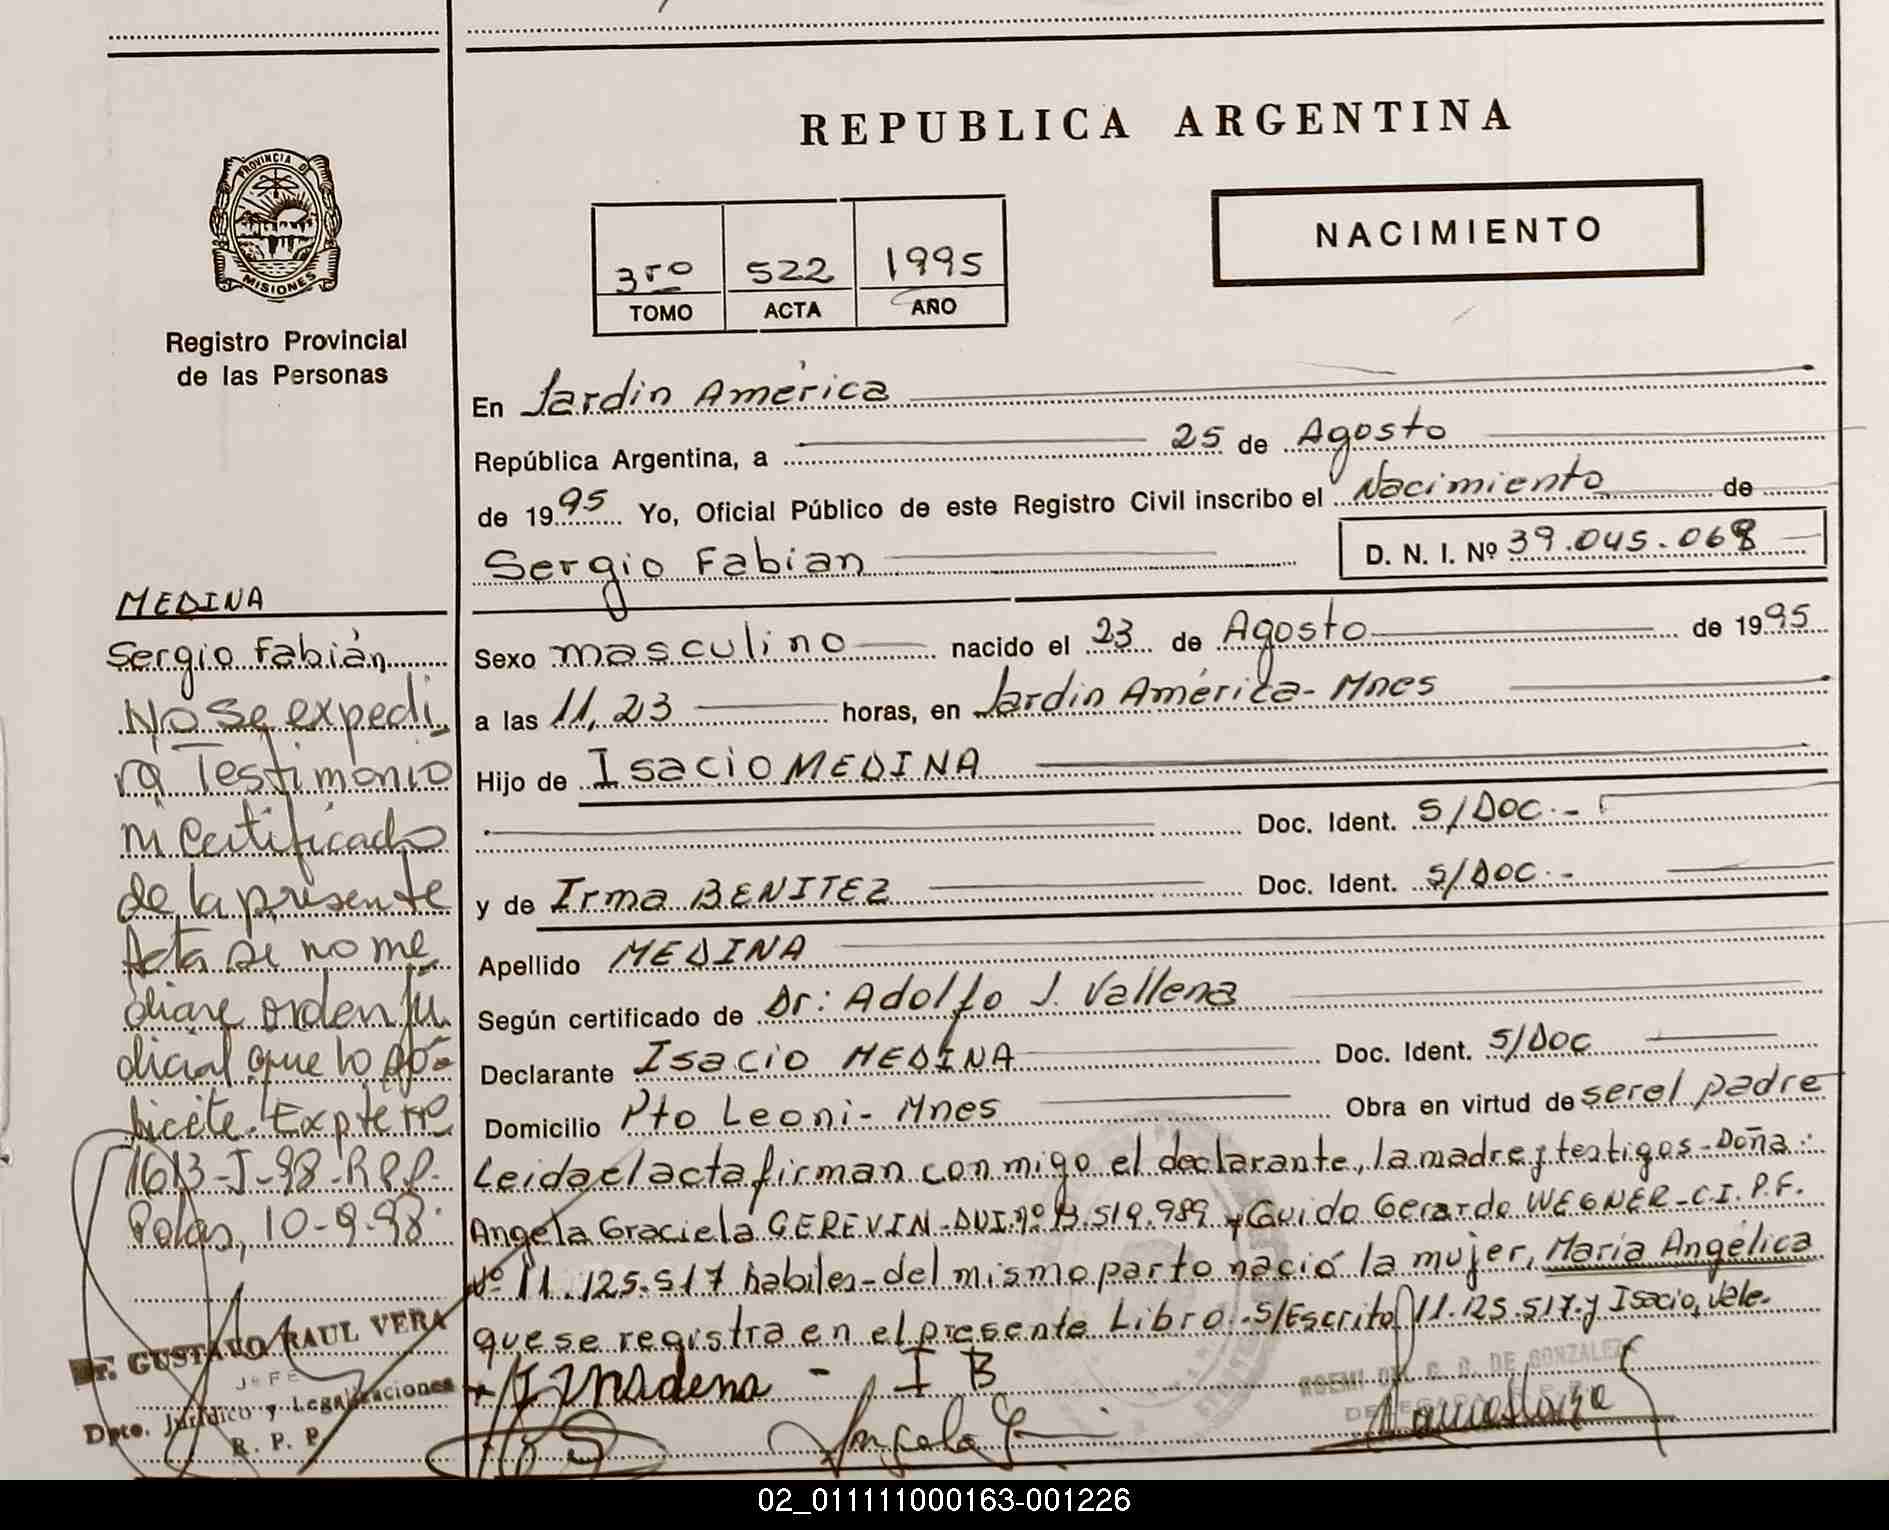 REPUBLICA ARGENTINA
PROVINCIA DE
MISIONES
Registro Provincial
de las Personas
3ro 522 1995
TOMO ACTA AÑO
NACIMIENTO
En Jardin América
República Argentina, a 25 de Agosto
de 1995 Yo, Oficial Público de este Registro Civil inscribo el Nacimiento de
Sergio Fabian D. N. I. Nº 39.045.068
Sexo masculino nacido el 23 de Agosto de 1995
a las 11,23 horas, en Jardin América-Mnes
Hijo de Isacio MEDINA
Doc. Ident. S/Doc.-
y de Irma BENITEZ Doc. Ident. S/Doc.-
Apellido MEDINA
Según certificado de Dr: Adolfo J. Vallena
Declarante Isacio MEDINA Doc. Ident. S/Doc
Domicilio Pto Leoni-Mnes Obra en virtud de ser el padre
Leida el acta firman conmigo el declarante, la madre y testigos-Doña:
Angela Graciela GEREVIN-DNI.nº 13.519.989 y Guido Gerardo WEGNER-C.I.P.F.
Nº 11.125.517 habiles-del mismo parto nació la mujer, María Angélica
que se registra en el presente Libro.-S/Escrito 11.125.517.y Isacio, Vale-
I B
NOEMI DEL C. D. DE GONZALEZ
MEDINA
Sergio Fabián
No Se expedi
rá Testimonio
ni Certificado
de la presente
Acta si no me
diare orden ju
dicial que lo so-
licite. Expte Nº
1613-J-98-R.P.P.
Pdas, 10-9-98
Dr. GUSTAVO RAUL VERA
JEFE
Dpto. Jurídico y Legalizaciones
R. P. P.
02_011111000163-001226